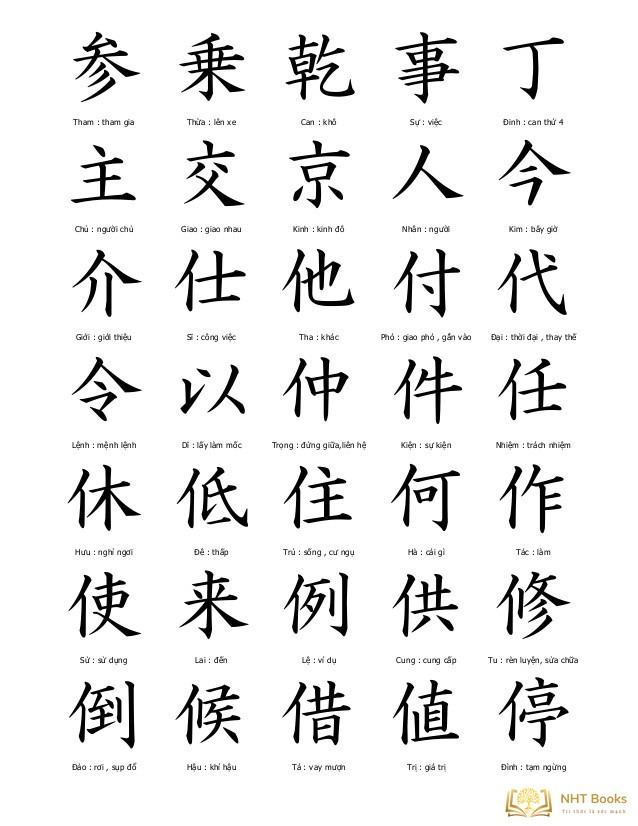 参 乗 乾 事 丁
Tham : tham gia Thừa : lên xe Can : khô Sự : việc Đinh : can thứ 4
主 交 京 人 今
Chủ : người chủ Giao : giao nhau Kinh : kinh đô Nhân : người Kim : bây giờ
介 仕 他 付 代
Giới : giới thiệu Sĩ : công việc Tha : khác Phó : giao phó , gắn vào Đại : thời đại , thay thế
令 以 仲 件 任
Lệnh : mệnh lệnh Dĩ : lấy làm mốc Trọng : đứng giữa,liên hệ Kiện : sự kiện Nhiệm : trách nhiệm
休 低 住 何 作
Hưu : nghỉ ngơi Đê : thấp Trú : sống , cư ngụ Hà : cái gì Tác : làm
使 来 例 供 修
Sử : sử dụng Lai : đến Lệ : ví dụ Cung : cung cấp Tu : rèn luyện, sửa chữa
倒 候 借 値 停
Đảo : rơi , sụp đổ Hậu : khí hậu Tá : vay mượn Trị : giá trị Đình : tạm ngừng
NHT Books
Tri thức là sức mạnh